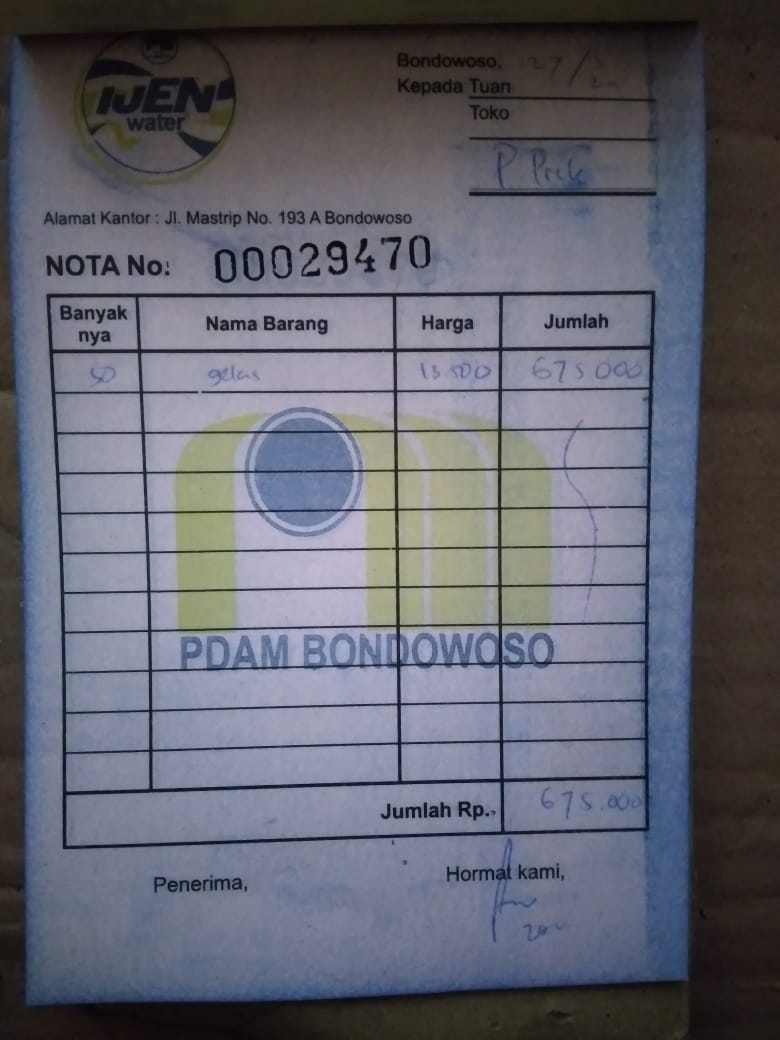 IJEN
water
Bondowoso, 27/
Kepada Tuan
Toko
P
Alamat Kantor : Jl. Mastrip No. 193 A Bondowoso
NOTA No: 00029470
Banyak nya Nama Barang Harga Jumlah
50 gelas 13 500 675 000
PDAM BONDOWOSO
Jumlah Rp.. 675.000
Penerima, Hormat kami,